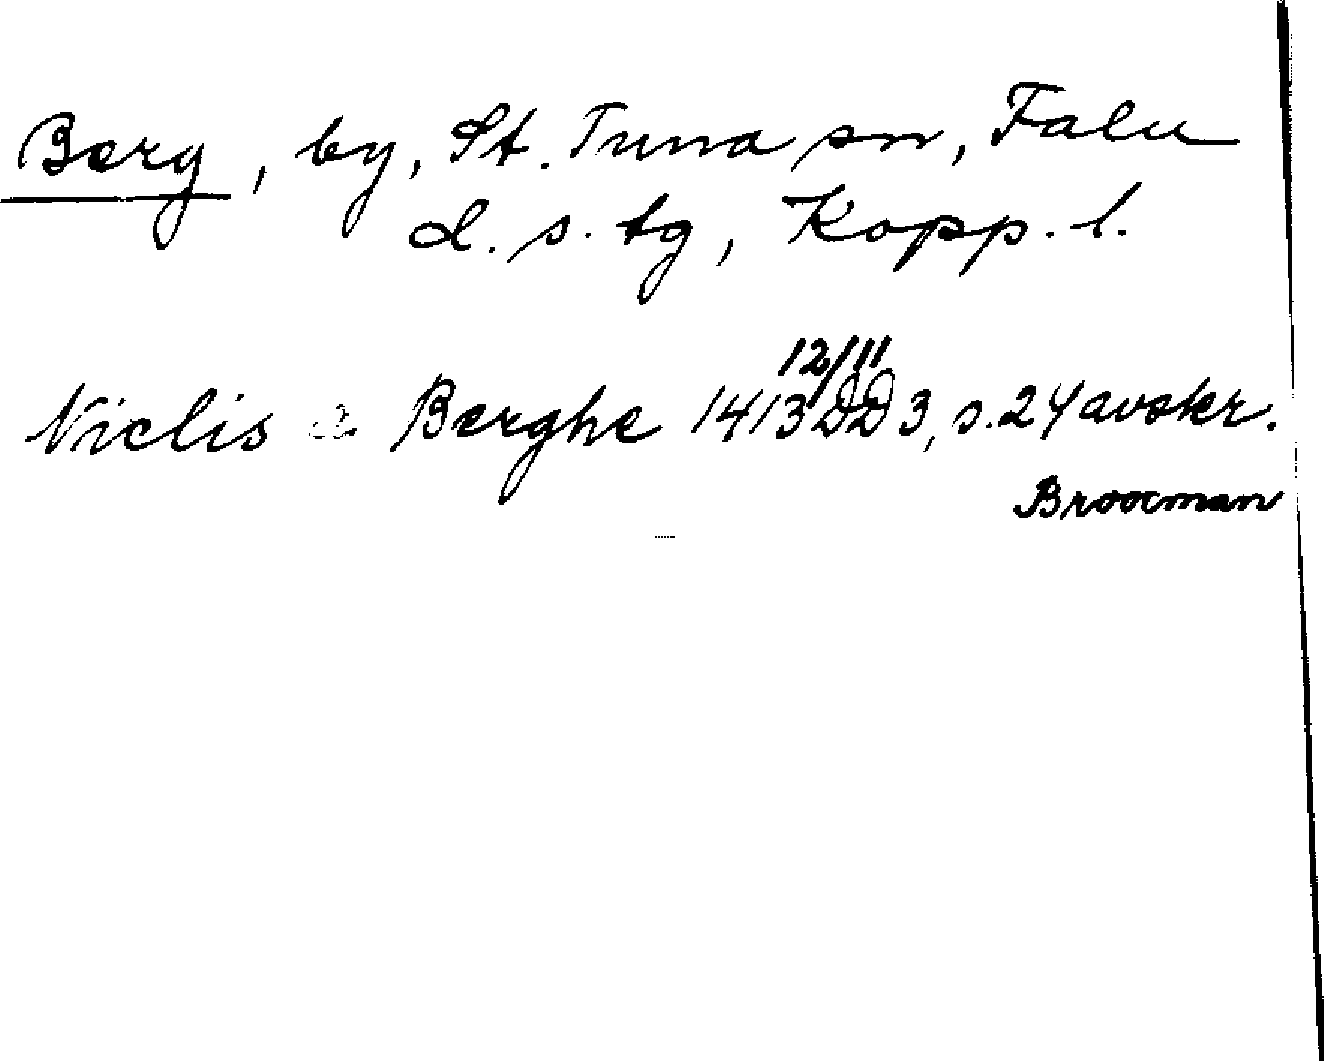 Berg, by, St. Tuna sn, Falu
d. s. tg, Kopp. l.
Niclis a Berghe 1413 12/11 DD 3, s. 24 avskr.
Broocman